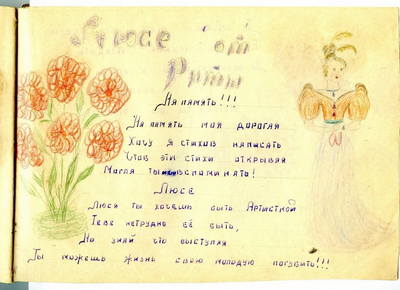 Люсе от
Риты
На память!!!
На память моя дорогая
Хочу я стихов написать
Чтоб эти стихи открывая
Могла ты вспоминать!
Люсе
Люся ты хочешь быть Артисткой
Тебе нетрудно её быть,
Но знай что выступая
Ты можешь жизнь свою молодую погубить!!!